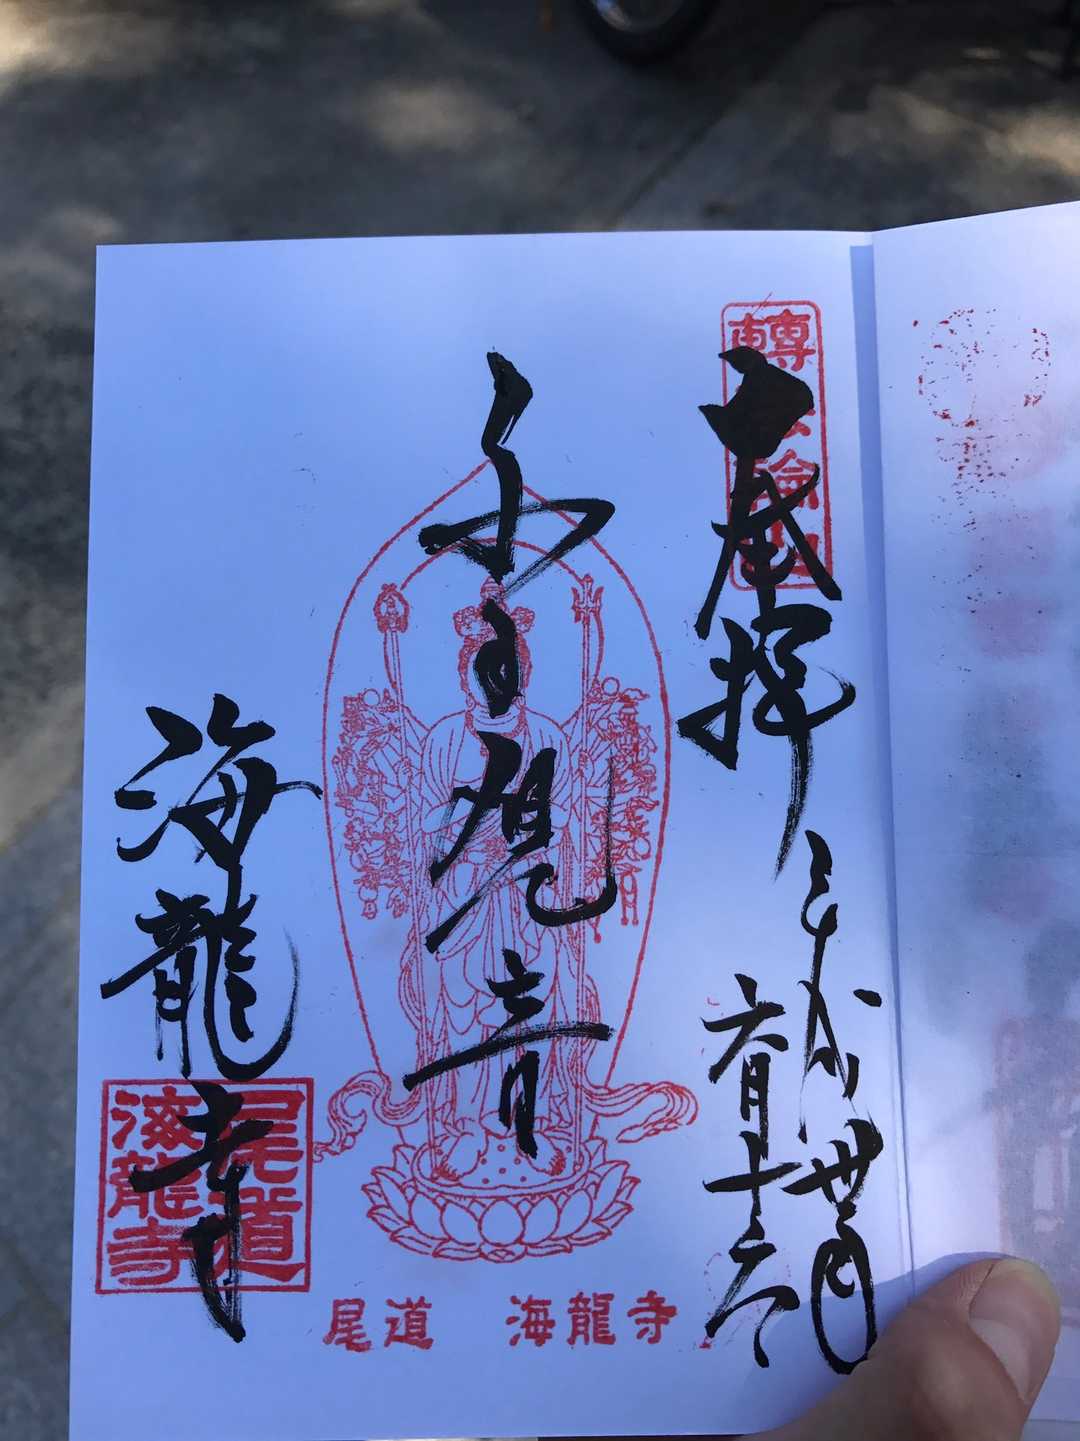 轉法輪山
奉拝
平成丗年
六月十六日
千手観音
海龍寺
尾道
海龍寺
尾道　海龍寺